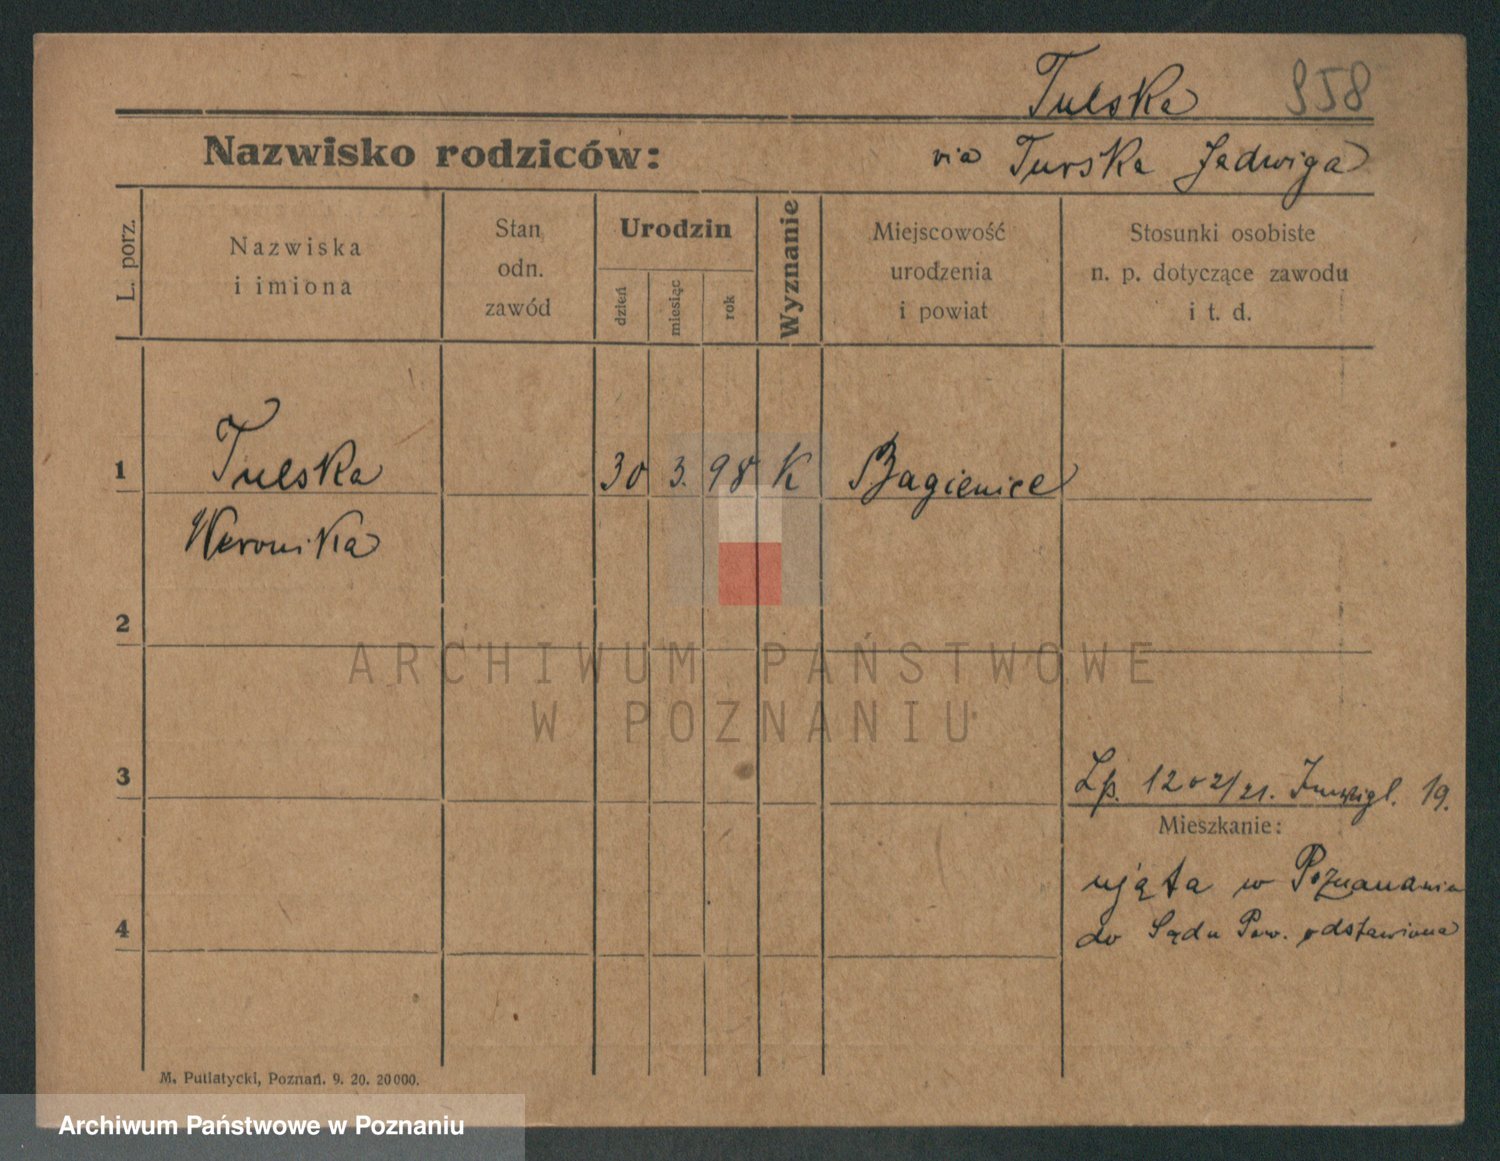 Tulska 958
Nazwisko rodziców: via Turska Jadwiga
L. porz.
Nazwiska
i imiona
Stan
odn.
zawód
Urodzin
dzień
miesiąc
rok
Wyznanie
Miejscowość
urodzenia
i powiat
Stosunki osobiste
n. p. dotyczące zawodu
i t. d.
1 Tulska 30 3. 98 K Bagienice
Weronika
2
ARCHIWUM PAŃSTWOWE
W POZNANIU
3
Lp. 1202/21. Inwigl. 19.
Mieszkanie:
ujęta w Poznaniu
4 do Sądu Pow. odstawiona
M. Putiatycki, Poznań. 9. 20. 20000.
Archiwum Państwowe w Poznaniu